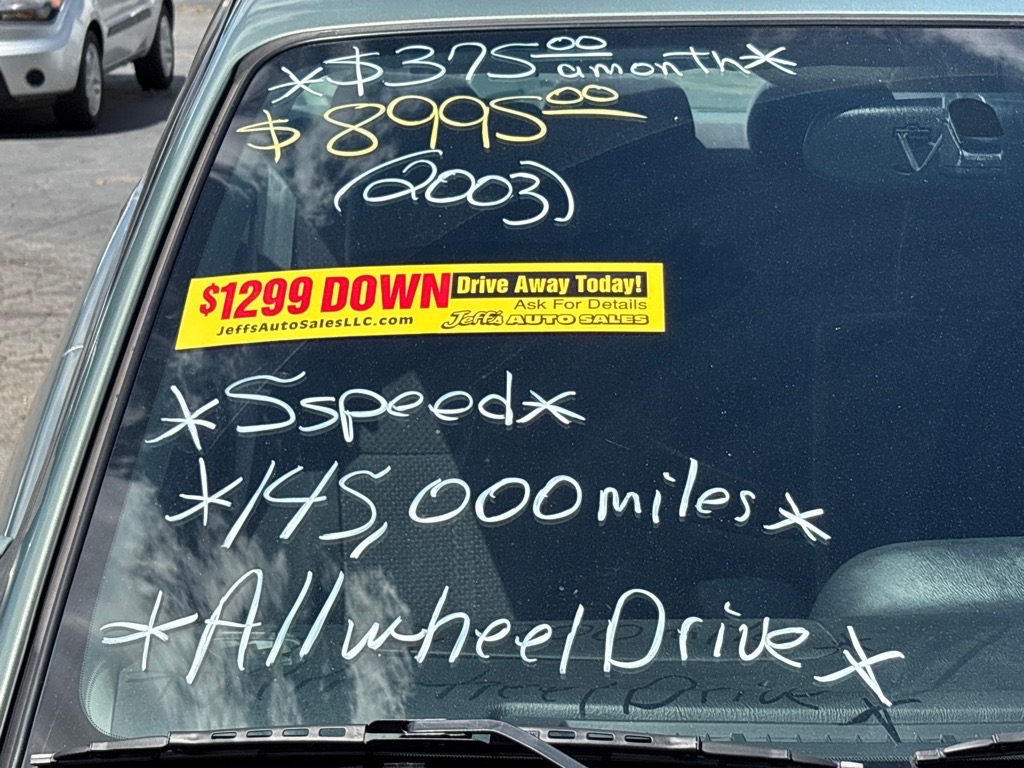 *$375.00 a month*
$8995.00
(2003)
$1299 DOWN Drive Away Today!
Ask For Details
JeffsAutoSalesLLC.com Jeff's AUTO SALES
*5speed*
*145,000 miles*
*All wheel Drive*